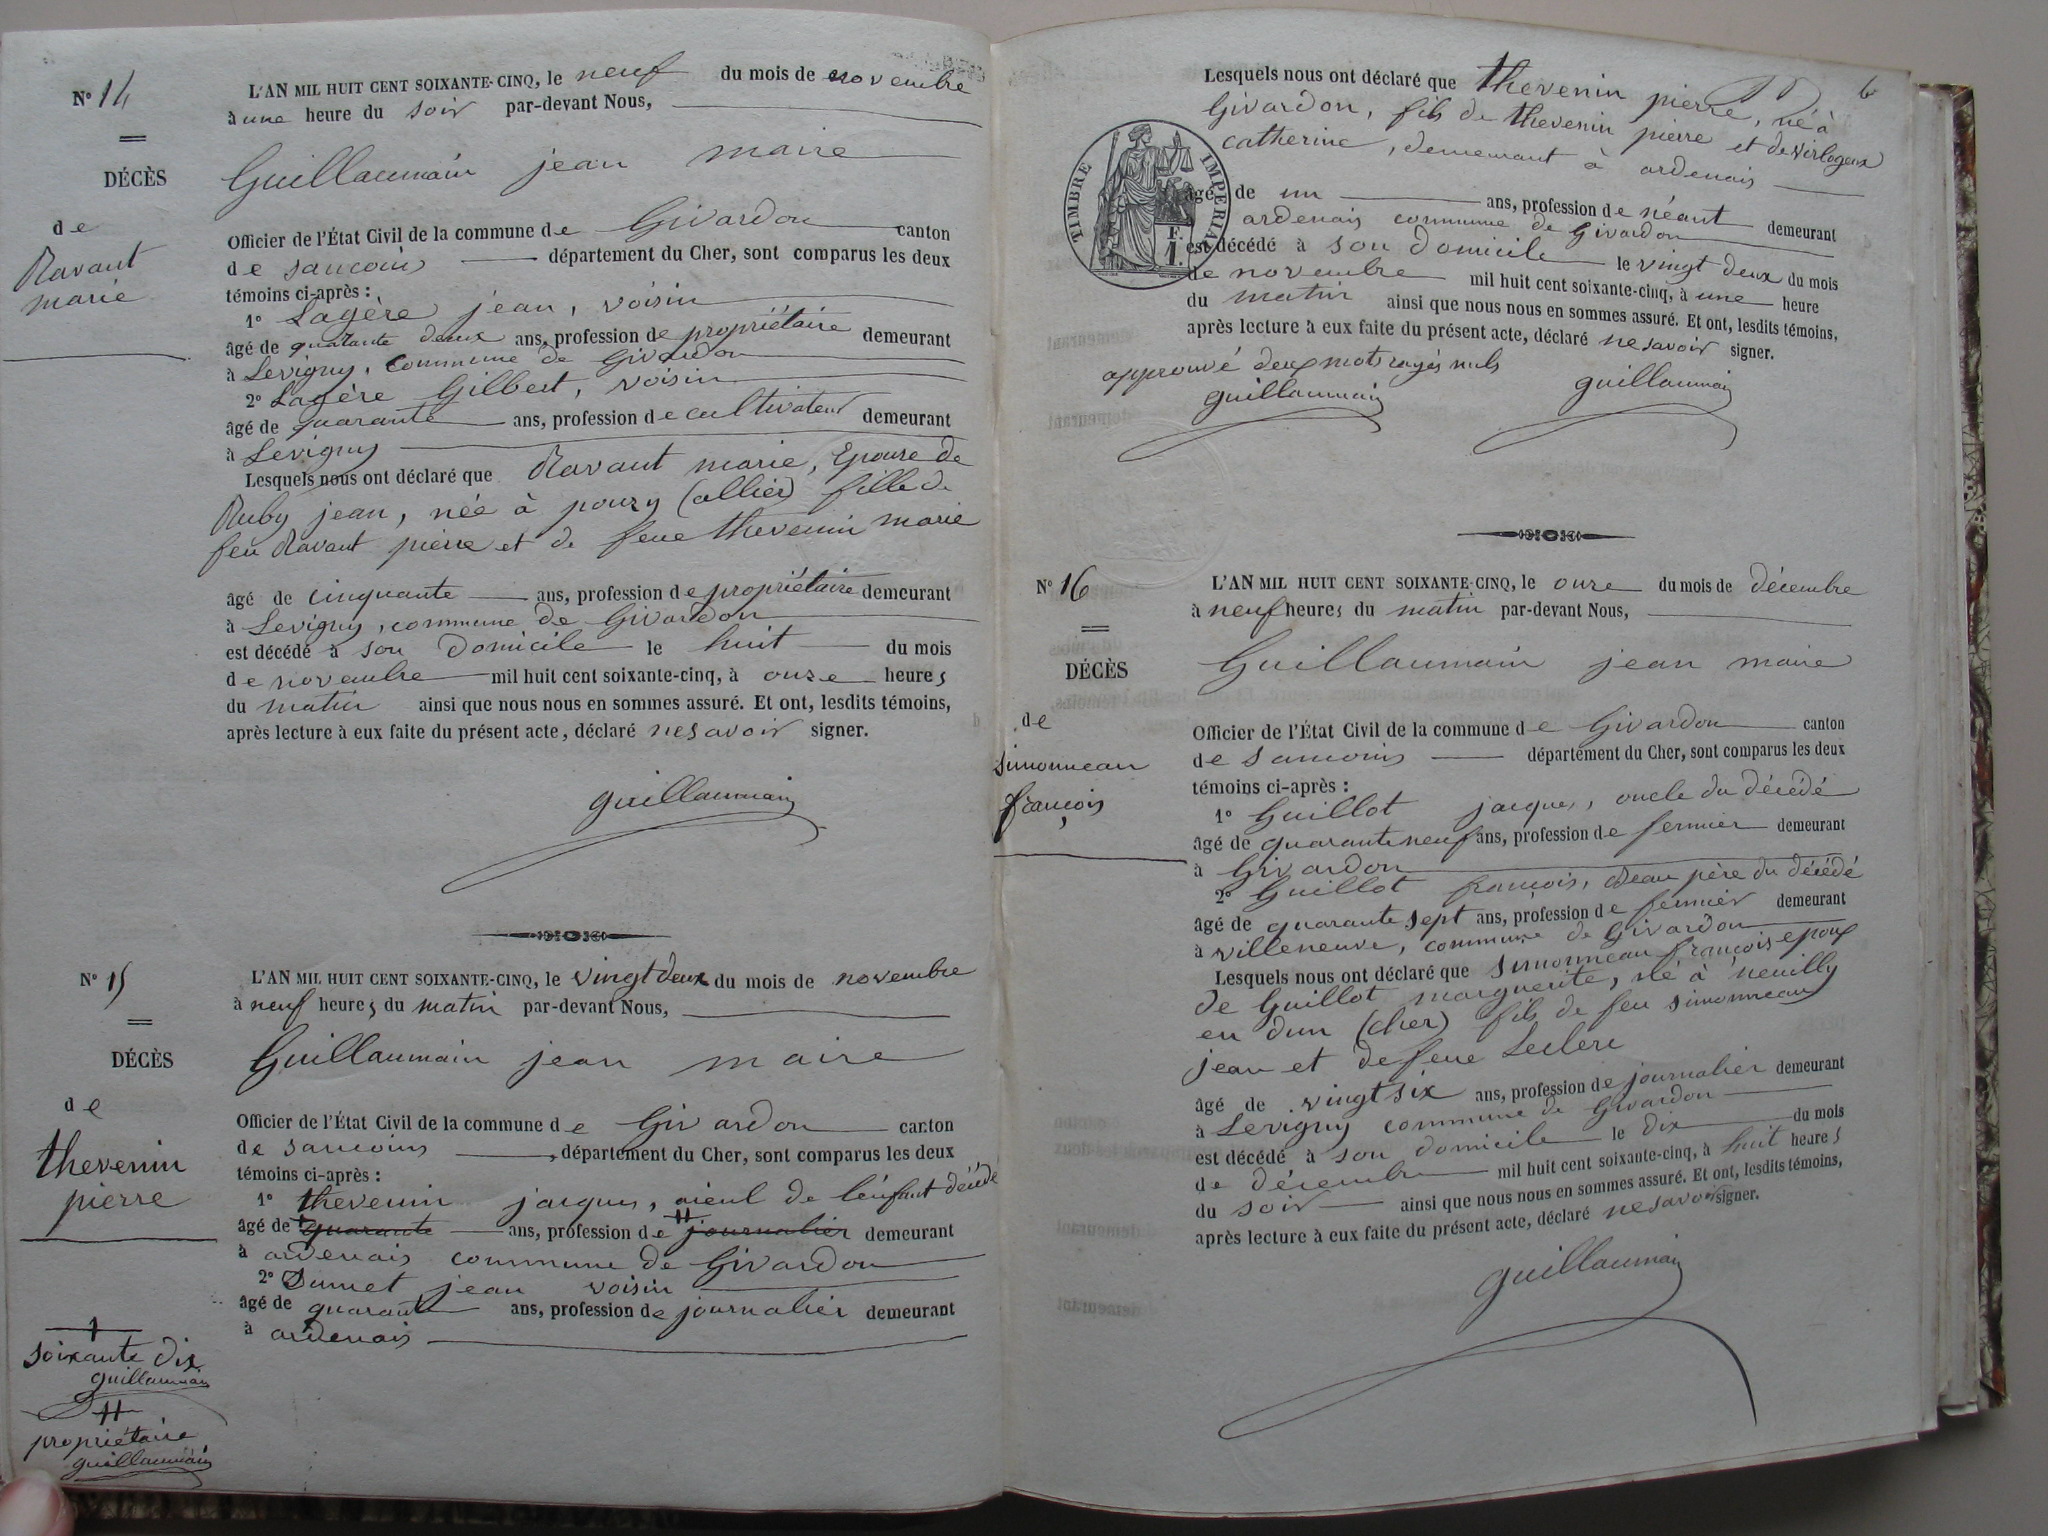 N° 14
DÉCÈS
de
Ravaut
marie
L'AN MIL HUIT CENT SOIXANTE-CINQ, le neuf du mois de novembre
à une heure du soir par-devant Nous,
Guillaumain jean maire
Officier de l'État Civil de la commune de Givardon canton
de sancoins département du Cher, sont comparus les deux
témoins ci-après :
1° Lagère jean, voisin
âgé de quarante deux ans, profession de propriétaire demeurant
à Levigny, commune de Givardon
2° Lagère Gilbert, voisin
âgé de quarante ans, profession de cultivateur demeurant
à Levigny
Lesquels nous ont déclaré que Ravaut marie, Epouse de
Ruby jean, née à pouzy (allier) fille de
feu Ravaut pierre et de feue thevenin marie
âgé de cinquante ans, profession de propriétaire demeurant
à Levigny, commune de Givardon
est décédé à son domicile le huit du mois
de novembre mil huit cent soixante-cinq, à onze heures
du matin ainsi que nous nous en sommes assuré. Et ont, lesdits témoins,
après lecture à eux faite du présent acte, déclaré ne savoir signer.
guillaumain
N° 15
DÉCÈS
de
thevenin
pierre
L'AN MIL HUIT CENT SOIXANTE-CINQ, le vingt deux du mois de novembre
à neuf heures du matin par-devant Nous,
Guillaumain jean maire
Officier de l'État Civil de la commune de Givardon canton
de sancoins département du Cher, sont comparus les deux
témoins ci-après :
1° thevenin jacques, aieul de l'enfant décédé
âgé de quarante ans, profession de journalier demeurant
à ardenais commune de Givardon
2° Dumet jean voisin
âgé de quarante ans, profession de journalier demeurant
à ardenais
soixante dix
guillaumain
propriétaire
guillaumain
6
Lesquels nous ont déclaré que thevenin pierre, né à
Givardon, fils de thevenin pierre et de virlogeux
catherine, demeurant à ardenais
TIMBRE IMPERIAL
F.
1.
âgé de un ans, profession de néant demeurant
ardenais commune de Givardon
est décédé à son domicile le vingt deux du mois
de novembre mil huit cent soixante-cinq, à une heure
du matin ainsi que nous nous en sommes assuré. Et ont, lesdits témoins,
après lecture à eux faite du présent acte, déclaré ne savoir signer.
approuvé deux mots rayés nuls
guillaumain guillaumain
N° 16
DÉCÈS
de
simonneau
françois
L'AN MIL HUIT CENT SOIXANTE-CINQ, le onze du mois de décembre
à neuf heures du matin par-devant Nous,
Guillaumain jean maire
Officier de l'État Civil de la commune de Givardon canton
de sancoins département du Cher, sont comparus les deux
témoins ci-après :
1° Guillot jacques, oncle du décédé
âgé de quarante neuf ans, profession de fermier demeurant
à Givardon
2° Guillot françois, Beau père du décédé
âgé de quarante sept ans, profession de fermier demeurant
à villeneuve, commune de Givardon
Lesquels nous ont déclaré que simonneau françois epoux
de Guillot marguerite, né à neuilly
en dun (cher) fils de feu simonneau
jean et de feue Leclerc
âgé de vingt six ans, profession de journalier demeurant
à Levigny commune de Givardon
est décédé à son domicile le dix du mois
de décembre mil huit cent soixante-cinq, à huit heures
du soir ainsi que nous nous en sommes assuré. Et ont, lesdits témoins,
après lecture à eux faite du présent acte, déclaré ne savoir signer.
guillaumain